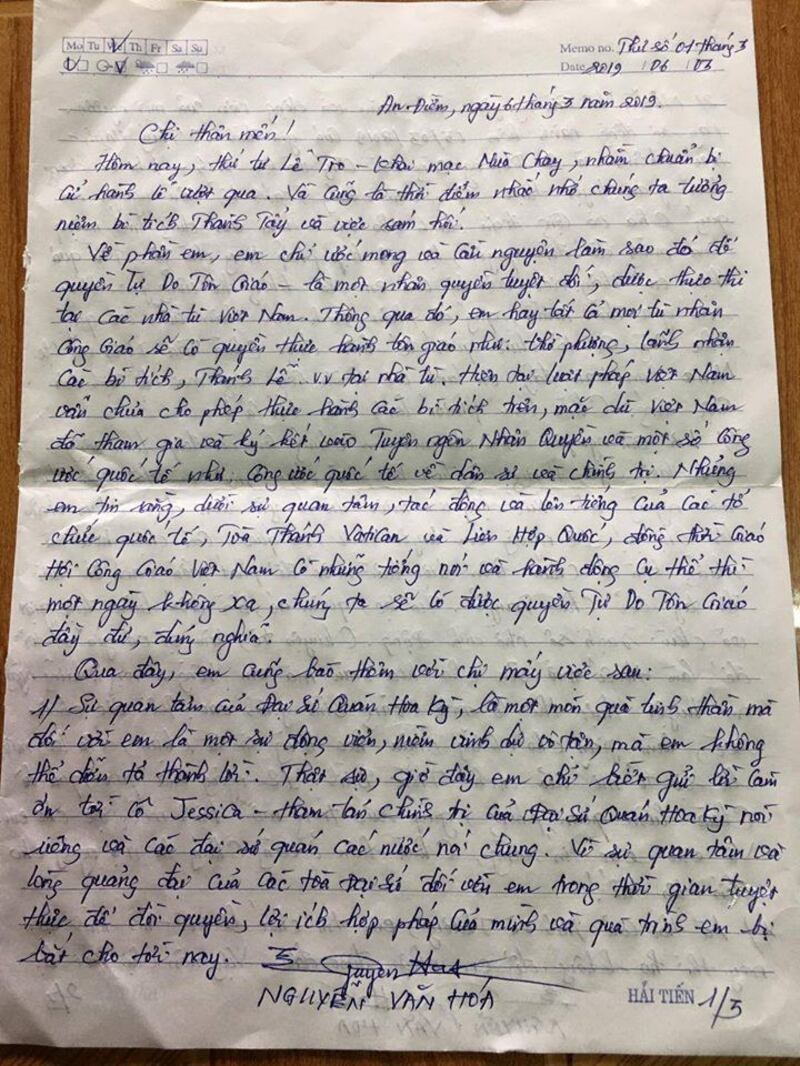 Mo Tu We Th Fr Sa Su
Memo no. Thư số 01 tháng 3
Date 2019 / 06 / 03
An Điềm, ngày 6 tháng 3 năm 2019.
Chị thân mến!
Hôm nay, thứ tư Lễ Tro - khai mạc Mùa Chay, nhằm chuẩn bị
cử hành lễ vượt qua. Và cũng là thời điểm nhắc nhở chúng ta tưởng
niệm bí tích Thanh Tẩy và việc sám hối.
Về phần em, em chỉ ước mong và cầu nguyện làm sao đó để
quyền Tự Do Tôn Giáo - là một nhân quyền tuyệt đối, được thực thi
tại các nhà tù Việt Nam. Thông qua đó, em hay tất cả mọi tù nhân
Công Giáo sẽ có quyền thực hành tôn giáo như: thờ phượng, lãnh nhận
các bí tích, Thánh Lễ v.v tại nhà tù. Hiện tại luật pháp Việt Nam
vẫn chưa cho phép thực hành các bí tích trên, mặc dù Việt Nam
đã tham gia và ký kết vào Tuyên ngôn Nhân Quyền và một số Công
ước quốc tế như: Công ước quốc tế về dân sự và chính trị. Nhưng
em tin rằng, dưới sự quan tâm, tác động và lên tiếng của các tổ
chức quốc tế, Toà Thánh Vatican và Liên Hợp Quốc, đồng thời Giáo
Hội Công Giáo Việt Nam có những tiếng nói và hành động cụ thể thì
một ngày không xa, chúng ta sẽ có được quyền Tự Do Tôn Giáo
đầy đủ, đúng nghĩa.
Qua đây, em cũng báo thêm với chị mấy việc sau:
1/ Sự quan tâm của Đại Sứ Quán Hoa Kỳ, là một món quà tinh thần mà
đối với em là một sự động viên, niềm vinh dự vô tận, mà em không
thể diễn tả thành lời. Thật sự, giờ đây em chỉ biết gửi lời cảm
ơn tới cô Jessica - tham tán chính trị của Đại Sứ Quán Hoa Kỳ nói
riêng và các đại sứ quán các nước nói chung. Vì sự quan tâm và
lòng quảng đại của các toà Đại Sứ đối với em trong thời gian tuyệt
thực để đòi quyền, lợi ích hợp pháp của mình và quá trình em bị
bắt cho tới nay.
NGUYỄN VĂN HÓA
HẢI TIẾN 1/3